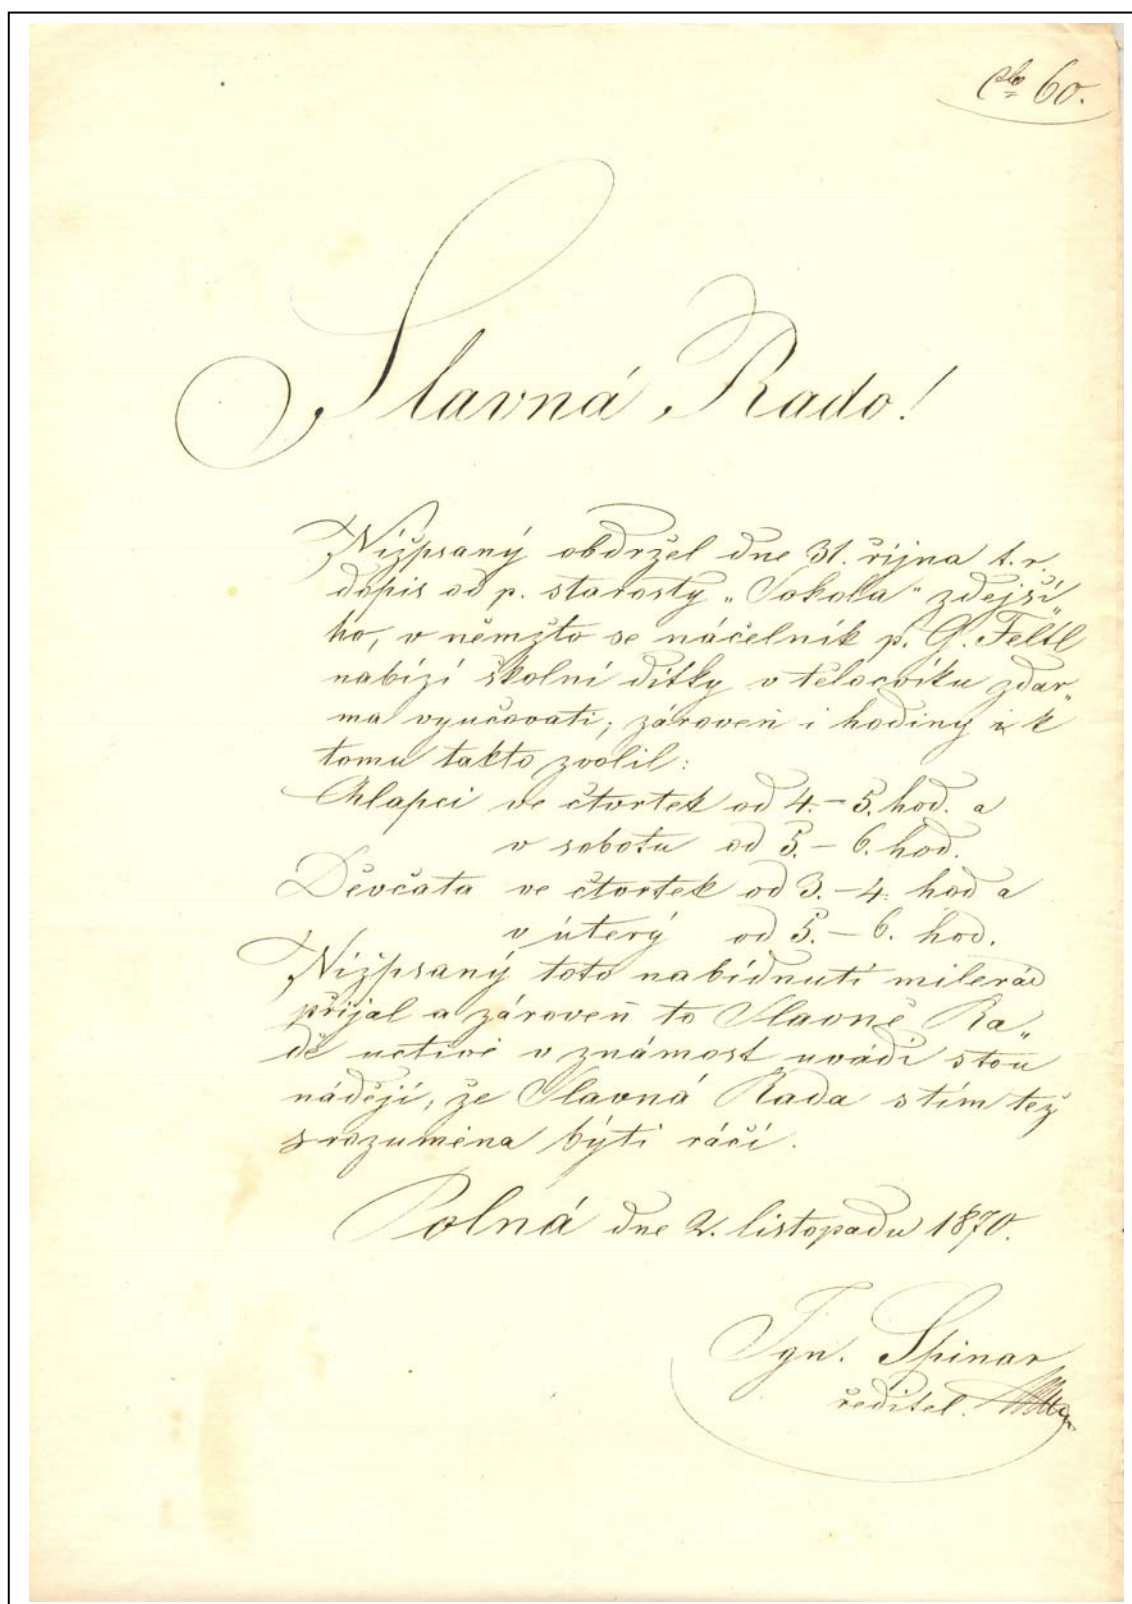 60.
Slavná Rado!
Nížpsaný obdržel dne 31. října t. r.
dopis od p. starosty „Sokola" zdejší
ho, v němžto se náčelník p. G. Feltl
nabízí školní dítky v tělocviku zdar„
ma vyučovati; zároveň i hodiny k
tomu takto zvolil:
Chlapci ve čtvrtek od 4.–5. hod. a
v sobotu od 5.–6. hod.
Děvčata ve čtvrtek od 3.–4. hod a
v úterý od 5.–6. hod.
Nížpsaný toto nabídnutí milerád
přijal a zároveň to Slavné Ra„
dě uctivě v známost uvádí stou
nadějí, že Slavná Rada s tím též
srozuměna býti ráčí.
Polná dne 2. listopadu 1870.
Ign. Spinar
ředitel.